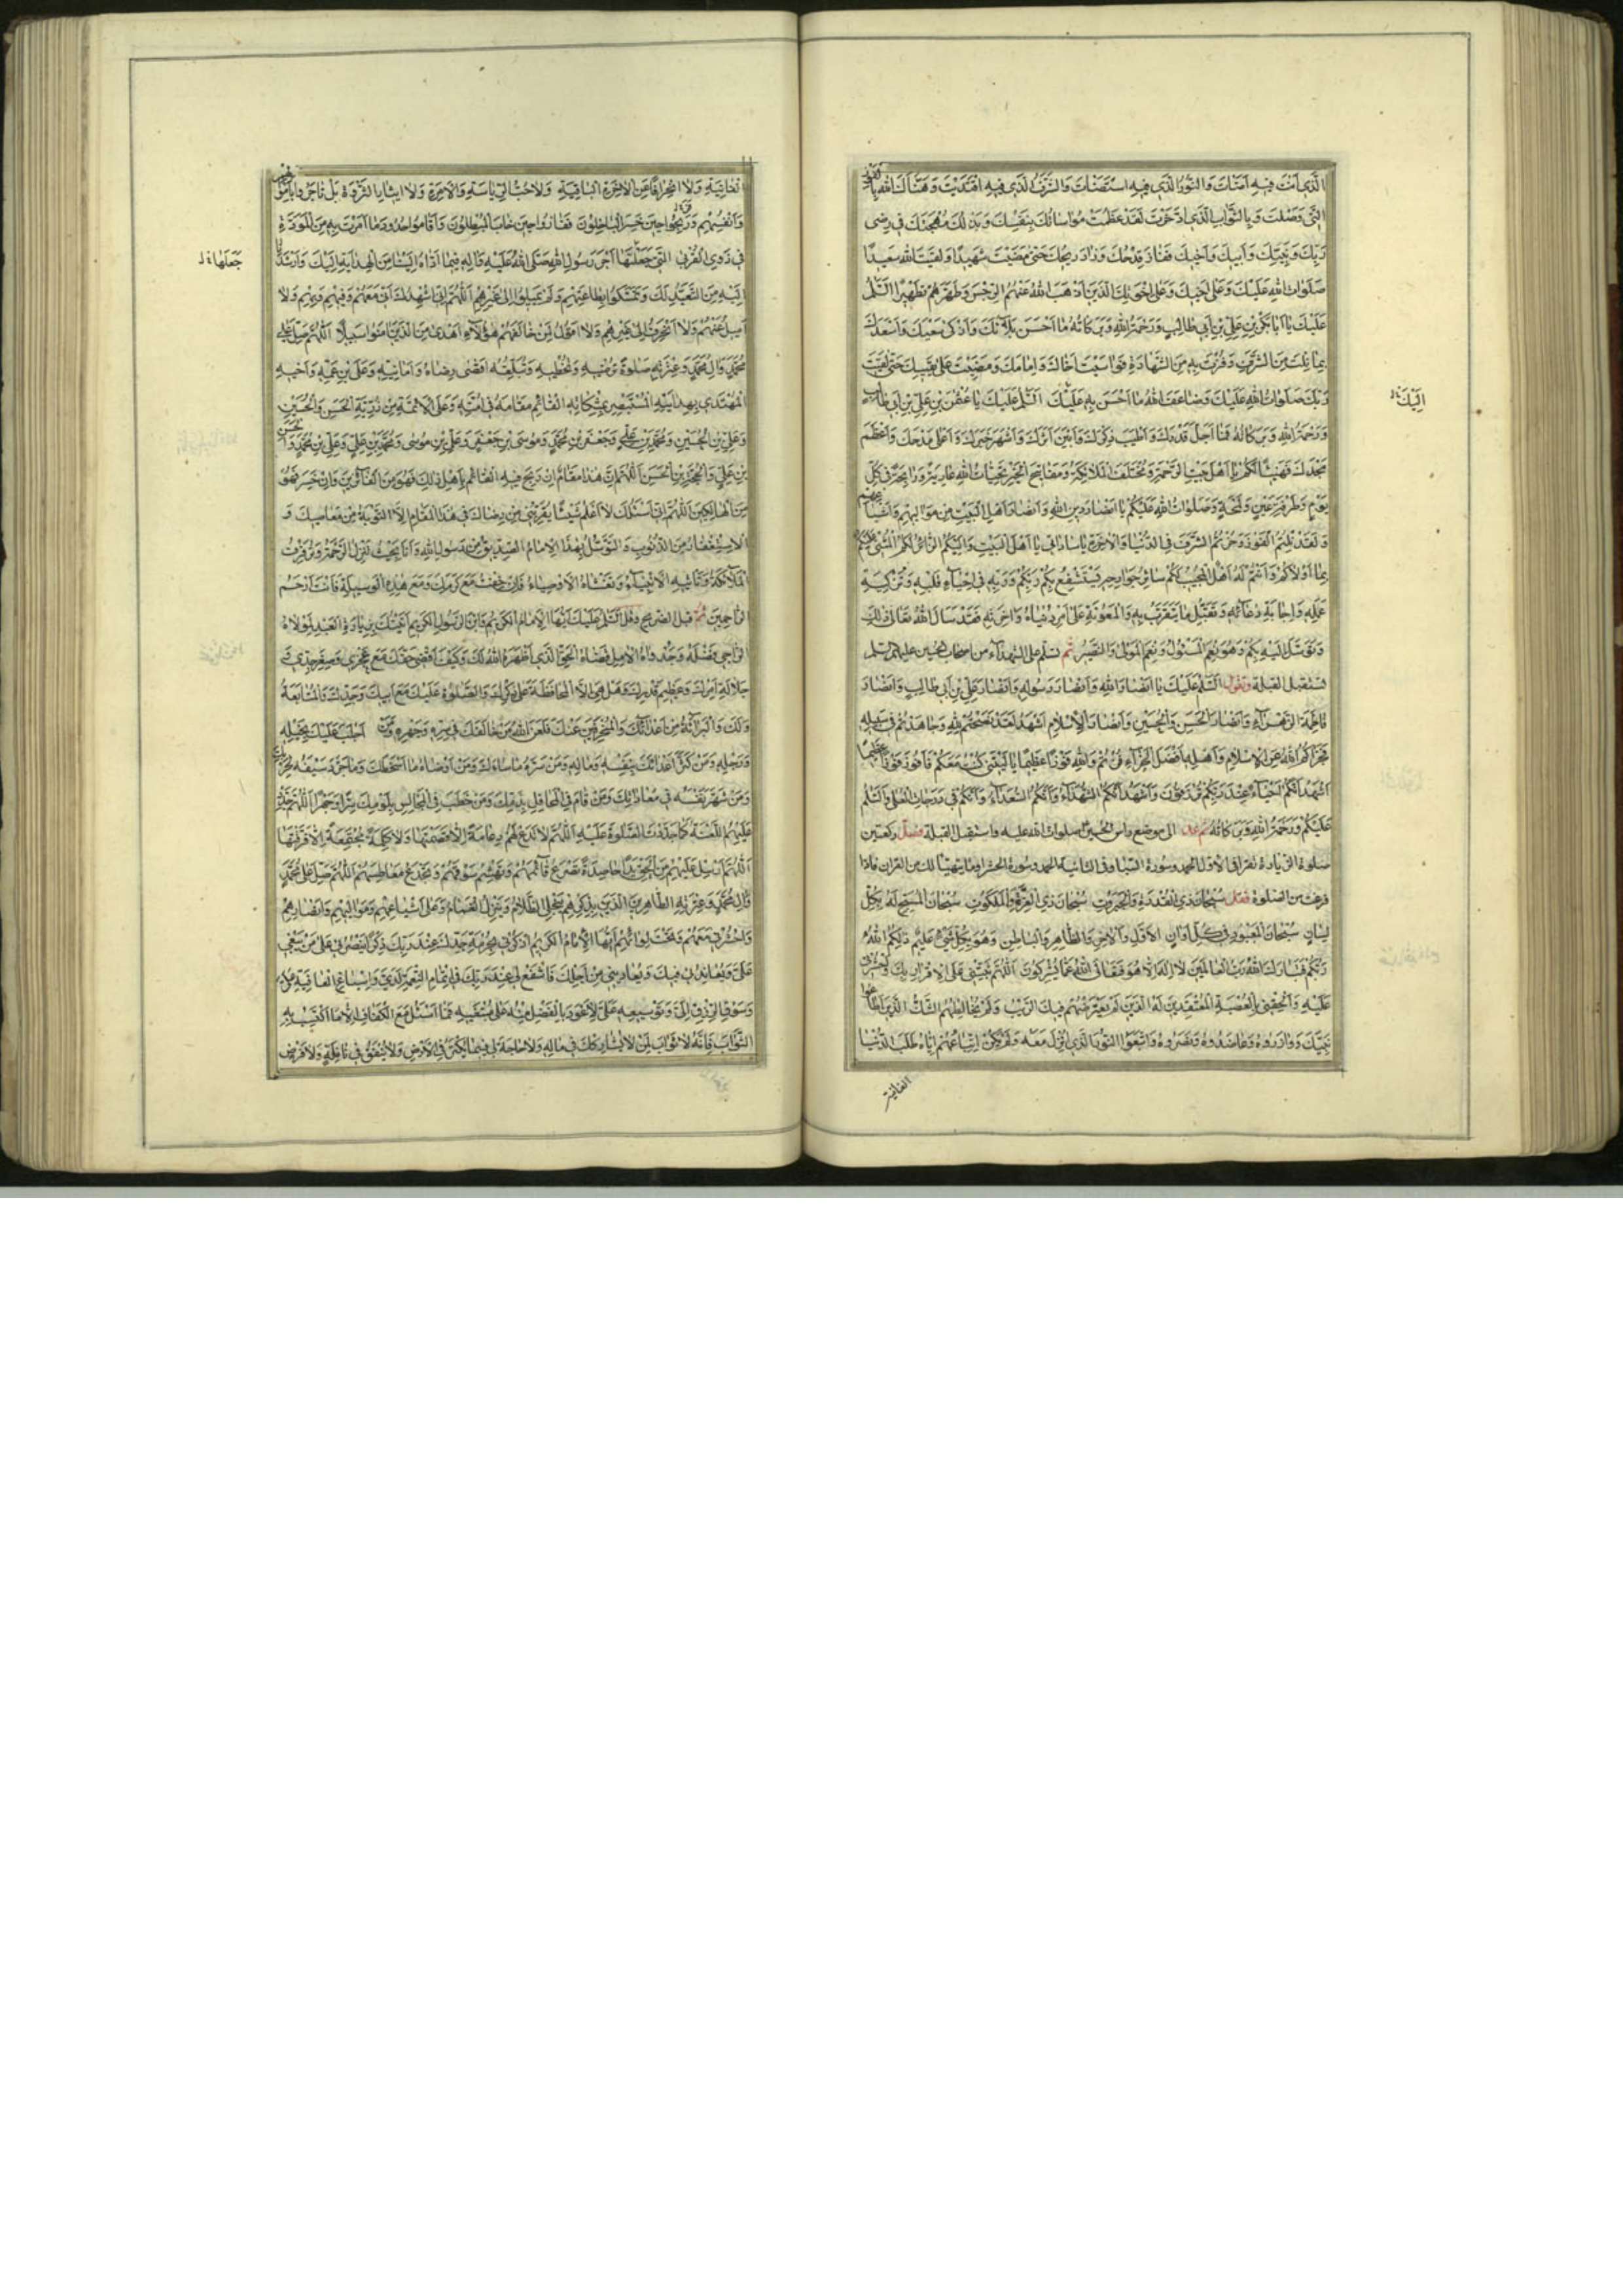 الَّذِي أَنْتَ فِيهِ آمَنْتَ وَالنُّورُ الَّذِي فِيهِ اسْتَضَأْتَ وَالشَّرَفُ الَّذِي فِيهِ اقْتَدَيْتَ وَهَنَّاكَ اللهُ بِالفَوْزِ
الَّتِي وَصَلْتَ وَبِالثَّوَابِ الَّذِي ادَّخَرْتَ لَقَدْ عَظُمَتْ مُوَاسَاتُكَ بِنَفْسِكَ وَبَذْلُكَ مُهْجَتَكَ فِي رِضَى
رَبِّكَ وَنَبِيِّكَ وَأَبِيكَ وَأَخِيكَ فَفَازَ قِدْحُكَ وَزَادَ رِبْحُكَ حَتَّى مَضَيْتَ شَهِيدًا وَلَقِيتَ اللهَ سَعِيدًا
صَلَوَاتُ اللهِ عَلَيْكَ وَعَلَى أَخِيكَ وَعَلَى إِخْوَتِكَ الَّذِينَ أَذْهَبَ اللهُ عَنْهُمُ الرِّجْسَ وَطَهَّرَهُمْ تَطْهِيرًا السَّلَامُ
عَلَيْكَ يَا أَبَا بَكْرِ بْنَ عَلِيِّ بْنِ أَبِي طَالِبٍ وَرَحْمَةُ اللهِ وَبَرَكَاتُهُ مَا أَحْسَنَ بَلَاءَكَ وَأَزْكَى سَعْيَكَ وَأَسْعَدَكَ
بِمَا نِلْتَ مِنَ الشَّرَفِ وَفُزْتَ بِهِ مِنَ الشَّهَادَةِ فَوَاسَيْتَ أَخَاكَ وَإِمَامَكَ وَمَضَيْتَ عَلَى يَقِينِكَ حَتَّى لَقِيتَ
رَبَّكَ صَلَوَاتُ اللهِ عَلَيْكَ وَضَاعَفَ اللهُ مَا أَحْسَنَ بِهِ عَلَيْكَ السَّلَامُ عَلَيْكَ يَا عُثْمَنَ بْنَ عَلِيِّ بْنِ أَبِي طَالِبٍ
إِلَيْكَ
وَرَحْمَةُ اللهِ وَبَرَكَاتُهُ فَمَا أَجَلَّ قَدْرَكَ وَأَطْيَبَ ذِكْرَكَ وَأَبْيَنَ أَثَرَكَ وَأَشْهَرَ خَيْرَكَ وَأَعْلَى مَدْحَكَ وَأَعْظَمَ
مَجْدَكَ فَهَنِيئًا لَكُمْ يَا أَهْلَ بَيْتِ الرَّحْمَةِ وَمُخْتَلَفَ الْمَلَائِكَةِ وَمَفَاتِيحَ الْخَيْرِ تَحِيَّاتُ اللهِ غَادِيَةً وَرَائِحَةً فِي كُلِّ
يَوْمٍ وَطَرْفَةِ عَيْنٍ وَلَمْحَةٍ وَصَلَوَاتُ اللهِ عَلَيْكُمْ يَا أَنْصَارَ دِينِ اللهِ وَأَنْصَارَ أَهْلِ الْبَيْتِ مِنْ مَوَالِيهِمْ وَأَشْيَاعِهِمْ
وَلَقَدْ نِلْتُمُ الْفَوْزَ وَحُزْتُمُ الشَّرَفَ فِي الدُّنْيَا وَالْآخِرَةِ يَا سَادَاتِي يَا أَهْلَ الْبَيْتِ وَلِيُّكُمُ الزَّائِرُ لَكُمُ الْمُثْنِي عَلَيْكُمْ
بِمَا أَوْلَاكُمْ وَأَنْتُمْ لَهُ أَهْلٌ الْمُجِيبُ لَكُمْ سَائِرُ جَوَارِحِهِ يَسْتَشْفِعُ بِكُمْ إِلَى رَبِّكُمْ وَرَبِّهِ فِي إِحْيَاءِ قَلْبِهِ وَتَزْكِيَةِ
عَمَلِهِ وَإِجَابَةِ دُعَائِهِ وَتَقَبُّلِ مَا يَتَقَرَّبُ بِهِ وَالْمَعُونَةِ عَلَى أَمْرِ دُنْيَاهُ وَآخِرَتِهِ فَقَدْ سَأَلَ اللهَ تَعَالَى ذَلِكَ
وَتَوَسَّلَ إِلَيْهِ بِكُمْ وَهُوَ نِعْمَ الْمَسْئُولُ وَنِعْمَ الْمَوْلَى وَالنَّصِيرُ ثم تسلم على الشهداء من أصحاب الحسين عليهم السلم
تستقبل القبلة وتقول السَّلَامُ عَلَيْكَ يَا أَنْصَارَ اللهِ وَأَنْصَارَ رَسُولِهِ وَأَنْصَارَ عَلِيِّ بْنِ أَبِي طَالِبٍ وَأَنْصَارَ
فَاطِمَةَ الزَّهْرَاءِ وَأَنْصَارَ الْحَسَنِ وَالْحُسَيْنِ وَأَنْصَارَ الْإِسْلَامِ أَشْهَدُ لَقَدْ نَصَحْتُمْ لِلهِ وَجَاهَدْتُمْ فِي سَبِيلِهِ
فَجَزَاكُمُ اللهُ عَنِ الْإِسْلَامِ وَأَهْلِهِ أَفْضَلَ الْجَزَاءِ فُزْتُمْ وَاللهِ فَوْزًا عَظِيمًا يَا لَيْتَنِي كُنْتُ مَعَكُمْ فَأَفُوزَ فَوْزًا عَظِيمًا
أَشْهَدُ أَنَّكُمْ أَحْيَاءٌ عِنْدَ رَبِّكُمْ تُرْزَقُونَ وَأَشْهَدُ أَنَّكُمُ الشُّهَدَاءُ وَأَنَّكُمُ السُّعَدَاءُ وَأَنَّكُمْ فِي دَرَجَاتِ الْعُلَى وَالسَّلَامُ
عَلَيْكُمْ وَرَحْمَةُ اللهِ وَبَرَكَاتُهُ ثم عد الى موضع راس الحسين صلوات الله عليه واستقبل القبلة فصلّ ركعتين
صلوة الزيادة تقرا في الاولى الحمد وسورة الانبيا وفى الثانية الحمد وسورة الحشر او ما يتهيا لك من القران فاذا
فرغت من الصلوة فقل سُبْحَانَ ذِي الْقُدْرَةِ وَالْجَبَرُوتِ سُبْحَانَ ذِي الْعِزَّةِ وَالْمَلَكُوتِ سُبْحَانَ الْمُسَبَّحِ لَهُ بِكُلِّ
لِسَانٍ سُبْحَانَ الْمَعْبُودِ فِي كُلِّ أَوَانٍ الْأَوَّلِ وَالْآخِرِ وَالظَّاهِرِ وَالْبَاطِنِ وَهُوَ بِكُلِّ شَيْءٍ عَلِيمٌ ذَلِكُمُ اللهُ
رَبُّكُمْ فَتَبَارَكَ اللهُ رَبُّ الْعَالَمِينَ لَا إِلَهَ إِلَّا هُوَ فَتَعَالَى اللهُ عَمَّا يُشْرِكُونَ اللَّهُمَّ ثَبِّتْنِي عَلَى الْإِقْرَارِ بِكَ وَاحْشُرْنِي
عَلَيْهِ وَأَلْحِقْنِي بِالْعُصْبَةِ الْمُعْتَقِدِينَ لَهُ الَّذِينَ لَمْ يَعْتَرِضْهُمْ فِيكَ الرَّيْبُ وَلَمْ يُخَالِطْهُمُ الشَّكُّ الَّذِينَ أَطَاعُوا
نَبِيَّكَ وَوَازَرُوهُ وَعَاضَدُوهُ وَنَصَرُوهُ وَاتَّبَعُوا النُّورَ الَّذِي أُنْزِلَ مَعَهُ وَلَمْ يَكُنْ اتِّبَاعُهُمْ إِيَّاهُ طَلَبَ الدُّنْيَا
الفانية
الْفَانِيَةِ وَلَا انْحِرَافًا عَنِ الْآخِرَةِ الْبَاقِيَةِ وَلَا حُبَّ الرِّيَاسَةِ وَالْإِمْرَةِ وَلَا إِيثَارَ الثَّرْوَةِ بَلْ تَاجَرُوا بِأَمْوَالِهِمْ
وَأَنْفُسِهِمْ وَرَبِحُوا حِينَ خَسِرَ الْبَاخِلُونَ وَفَازُوا حِينَ خَابَ الْمُبْطِلُونَ وَأَقَامُوا حُدُودَ مَا أَمَرْتَ بِهِ مِنَ الْمَوَدَّةِ
فِي ذَوِي الْقُرْبَى الَّتِي جَعَلْتَهَا أَجْرَ رَسُولِ اللهِ صَلَّى اللهُ عَلَيْهِ وَآلِهِ فِيمَا أَدَّاهُ إِلَيْنَا مِنَ الْهِدَايَةِ إِلَيْكَ وَأَرْشَدَنَا
جَعَلَهَا
إِلَيْهِ مِنَ التَّعَبُّدِ لَكَ وَتَمَسَّكُوا بِطَاعَتِهِمْ وَلَمْ يَمِيلُوا إِلَى غَيْرِهِمْ اللَّهُمَّ إِنِّي أُشْهِدُكَ أَنِّي مَعَهُمْ وَفِيهِمْ وَبِهِمْ وَلَا
أَمِيلُ عَنْهُمْ وَلَا أَنْحَرِفُ إِلَى غَيْرِهِمْ وَلَا أَقُولُ لِمَنْ خَالَفَهُمْ هَؤُلَاءِ أَهْدَى مِنَ الَّذِينَ آمَنُوا سَبِيلًا اللَّهُمَّ صَلِّ عَلَى
مُحَمَّدٍ وَآلِ مُحَمَّدٍ وَعِتْرَتِهِ صَلَوةً تُرْضِيهِ وَتُحْظِيهِ وَتُبَلِّغُهُ أَقْصَى رِضَاهُ وَأَمَانِيِّهِ وَعَلَى ابْنِ عَمِّهِ وَأَخِيهِ
الْمُهْتَدِي بِهِدَايَتِهِ الْمُسْتَبْصِرِ بِمِشْكَاتِهِ الْقَائِمِ مَقَامَهُ فِي أُمَّتِهِ وَعَلَى الْأَئِمَّةِ مِنْ ذُرِّيَّتِهِ الْحَسَنِ وَالْحُسَيْنِ
وَعَلِيِّ بْنِ الْحُسَيْنِ وَمُحَمَّدِ بْنِ عَلِيٍّ وَجَعْفَرِ بْنِ مُحَمَّدٍ وَمُوسَى بْنِ جَعْفَرٍ وَعَلِيِّ بْنِ مُوسَى وَمُحَمَّدِ بْنِ عَلِيٍّ وَعَلِيِّ بْنِ مُحَمَّدٍ وَالْحَسَنِ
بْنِ عَلِيٍّ وَالْحُجَّةِ بْنِ الْحَسَنِ اللَّهُمَّ إِنَّ هَذَا مَقَامٌ إِنْ رَبِحَ فِيهِ الْقَائِمُ بِأَهْلِ ذَلِكَ فَهُوَ مِنَ الْفَائِزِينَ وَإِنْ خَسِرَ فَهُوَ
مِنَ الْهَالِكِينَ اللَّهُمَّ إِنِّي أَسْئَلُكَ لَا أَعْلَمُ شَيْئًا يُقَرِّبُنِي مِنْ رِضَاكَ فِي هَذَا الْمَقَامِ إِلَّا التَّوْبَةَ مِنْ مَعَاصِيكَ وَ
الِاسْتِغْفَارَ مِنَ الذُّنُوبِ وَالتَّوَسُّلَ بِهَذَا الْإِمَامِ الصِّدِّيقِ ابْنِ رَسُولِ اللهِ وَأَنَا بِحَيْثُ تَنْزِلُ الرَّحْمَةُ وَتُرَفْرِفُ
الْمَلَائِكَةُ وَتَأْتِيهِ الْأَنْبِيَاءُ وَتَغْشَاهُ الْأَوْصِيَاءُ فَإِنْ خِفْتُ مَعَ كَرَمِكَ وَمَعَ هَذِهِ الْوَسِيلَةِ فَأَنْتَ أَرْحَمُ
الرَّاحِمِينَ ثم قبل الضريح وقل السَّلَامُ عَلَيْكَ أَيُّهَا الْإِمَامُ الْكَرِيمُ وَابْنُ الرَّسُولِ الْكَرِيمِ أَتَيْتُكَ بِزِيَارَةِ الْعَبْدِ لِمَوْلَاهُ
الرَّاجِي فَضْلَهُ وَجَدْوَاهُ الْآمِلِ قَضَاءَ الْحَقِّ الَّذِي أَظْهَرَهُ اللهُ لَكَ وَكَيْفَ أَقْضِي حَقَّكَ مَعَ عَجْزِي وَصِغَرِ جِدِّي وَ
جَلَالَةِ أَمْرِكَ وَعَظِيمِ قَدْرِكَ وَهَلْ هِيَ إِلَّا الْمُحَافَظَةُ عَلَى ذِكْرِكَ وَالصَّلَوةُ عَلَيْكَ مَعَ أَبِيكَ وَجَدِّكَ وَالْمُتَابَعَةُ
لَكَ وَالْبَرَاءَةُ مِنْ أَعْدَائِكَ وَالْمُنْحَرِفِينَ عَنْكَ فَلَعَنَ اللهُ مَنْ خَالَفَكَ فِي سِرِّهِ وَجَهْرِهِ وَمَنْ أَجْلَبَ عَلَيْكَ بِخَيْلِهِ
وَرَجْلِهِ وَمَنْ كَثَّرَ أَعْدَائَكَ بِنَفْسِهِ وَمَالِهِ وَمَنْ سَرَّهُ مَا سَاءَكَ وَمَنْ أَرْضَاهُ مَا أَسْخَطَكَ وَمَنْ جَرَّدَ سَيْفَهُ لِحَرْبِكَ
وَمَنْ شَهَرَ نَفْسَهُ فِي مُعَادَاتِكَ وَمَنْ قَامَ فِي الْمَحَافِلِ بِذَمِّكَ وَمَنْ خَطَبَ فِي الْمَجَالِسِ بِلَوْمِكَ سِرًّا وَجَهْرًا اللَّهُمَّ جَدِّدْ
عَلَيْهِمُ اللَّعْنَةَ كَمَا جَدَّدْتَ الصَّلَوةَ عَلَيْهِ اللَّهُمَّ لَا تَدَعْ لَهُمْ دِعَامَةً إِلَّا قَصَمْتَهَا وَلَا كَلِمَةً مُجْتَمِعَةً إِلَّا فَرَّقْتَهَا
اللَّهُمَّ أَرْسِلْ عَلَيْهِمْ مِنَ الْحَقِّ يَدًا حَاصِدَةً تَصْرَعُ قَائِمَهُمْ وَتَهْشِمُ سُوقَهُمْ وَتَجْدَعُ مَعَاطِسَهُمْ اللَّهُمَّ صَلِّ عَلَى مُحَمَّدٍ
وَآلِ مُحَمَّدٍ وَعِتْرَتِهِ الطَّاهِرِينَ الَّذِينَ بِذِكْرِهِمْ يَنْجَلِي الظَّلَامُ وَيَنْزِلُ الْغَمَامُ وَعَلَى أَشْيَاعِهِمْ وَمَوَالِيهِمْ وَأَنْصَارِهِمْ
وَاحْشُرْنِي مَعَهُمْ وَتَحْتَ لِوَائِهِمْ أَيُّهَا الْإِمَامُ الْكَرِيمُ اذْكُرْنِي بِحُرْمَةِ جَدِّكَ عِنْدَ رَبِّكَ ذِكْرًا يَنْصُرُنِي عَلَى مَنْ يَبْغِي
عَلَيَّ وَيُعَانِدُنِي فِيكَ وَيُعَادِينِي مِنْ أَجْلِكَ فَاشْفَعْ لِي عِنْدَ رَبِّكَ فِي إِتْمَامِ النِّعْمَةِ لَدَيَّ وَإِسْبَاغِ الْعَافِيَةِ عَلَيَّ
وَسَوْقِ الرِّزْقِ إِلَيَّ وَتَوْسِيعِهِ عَلَيَّ لِأَعُودَ بِالْفَضْلِ مِنْهُ عَلَى مُبْتَغِيهِ فَمَا أَسْئَلُ مَعَ الْكَفَافِ إِلَّا مَا أَكْتَسِبُ بِهِ
الثَّوَابَ فَإِنَّهُ لَا ثَوَابَ لِمَنْ لَا يُشَارِكُكَ فِي مَالِهِ وَلَا حَاجَةَ لِي فِيمَا يُكْنَزُ فِي الْأَرْضِ وَلَا يُنْفَقُ فِي نَافِلَةٍ وَلَا فَرْضٍ